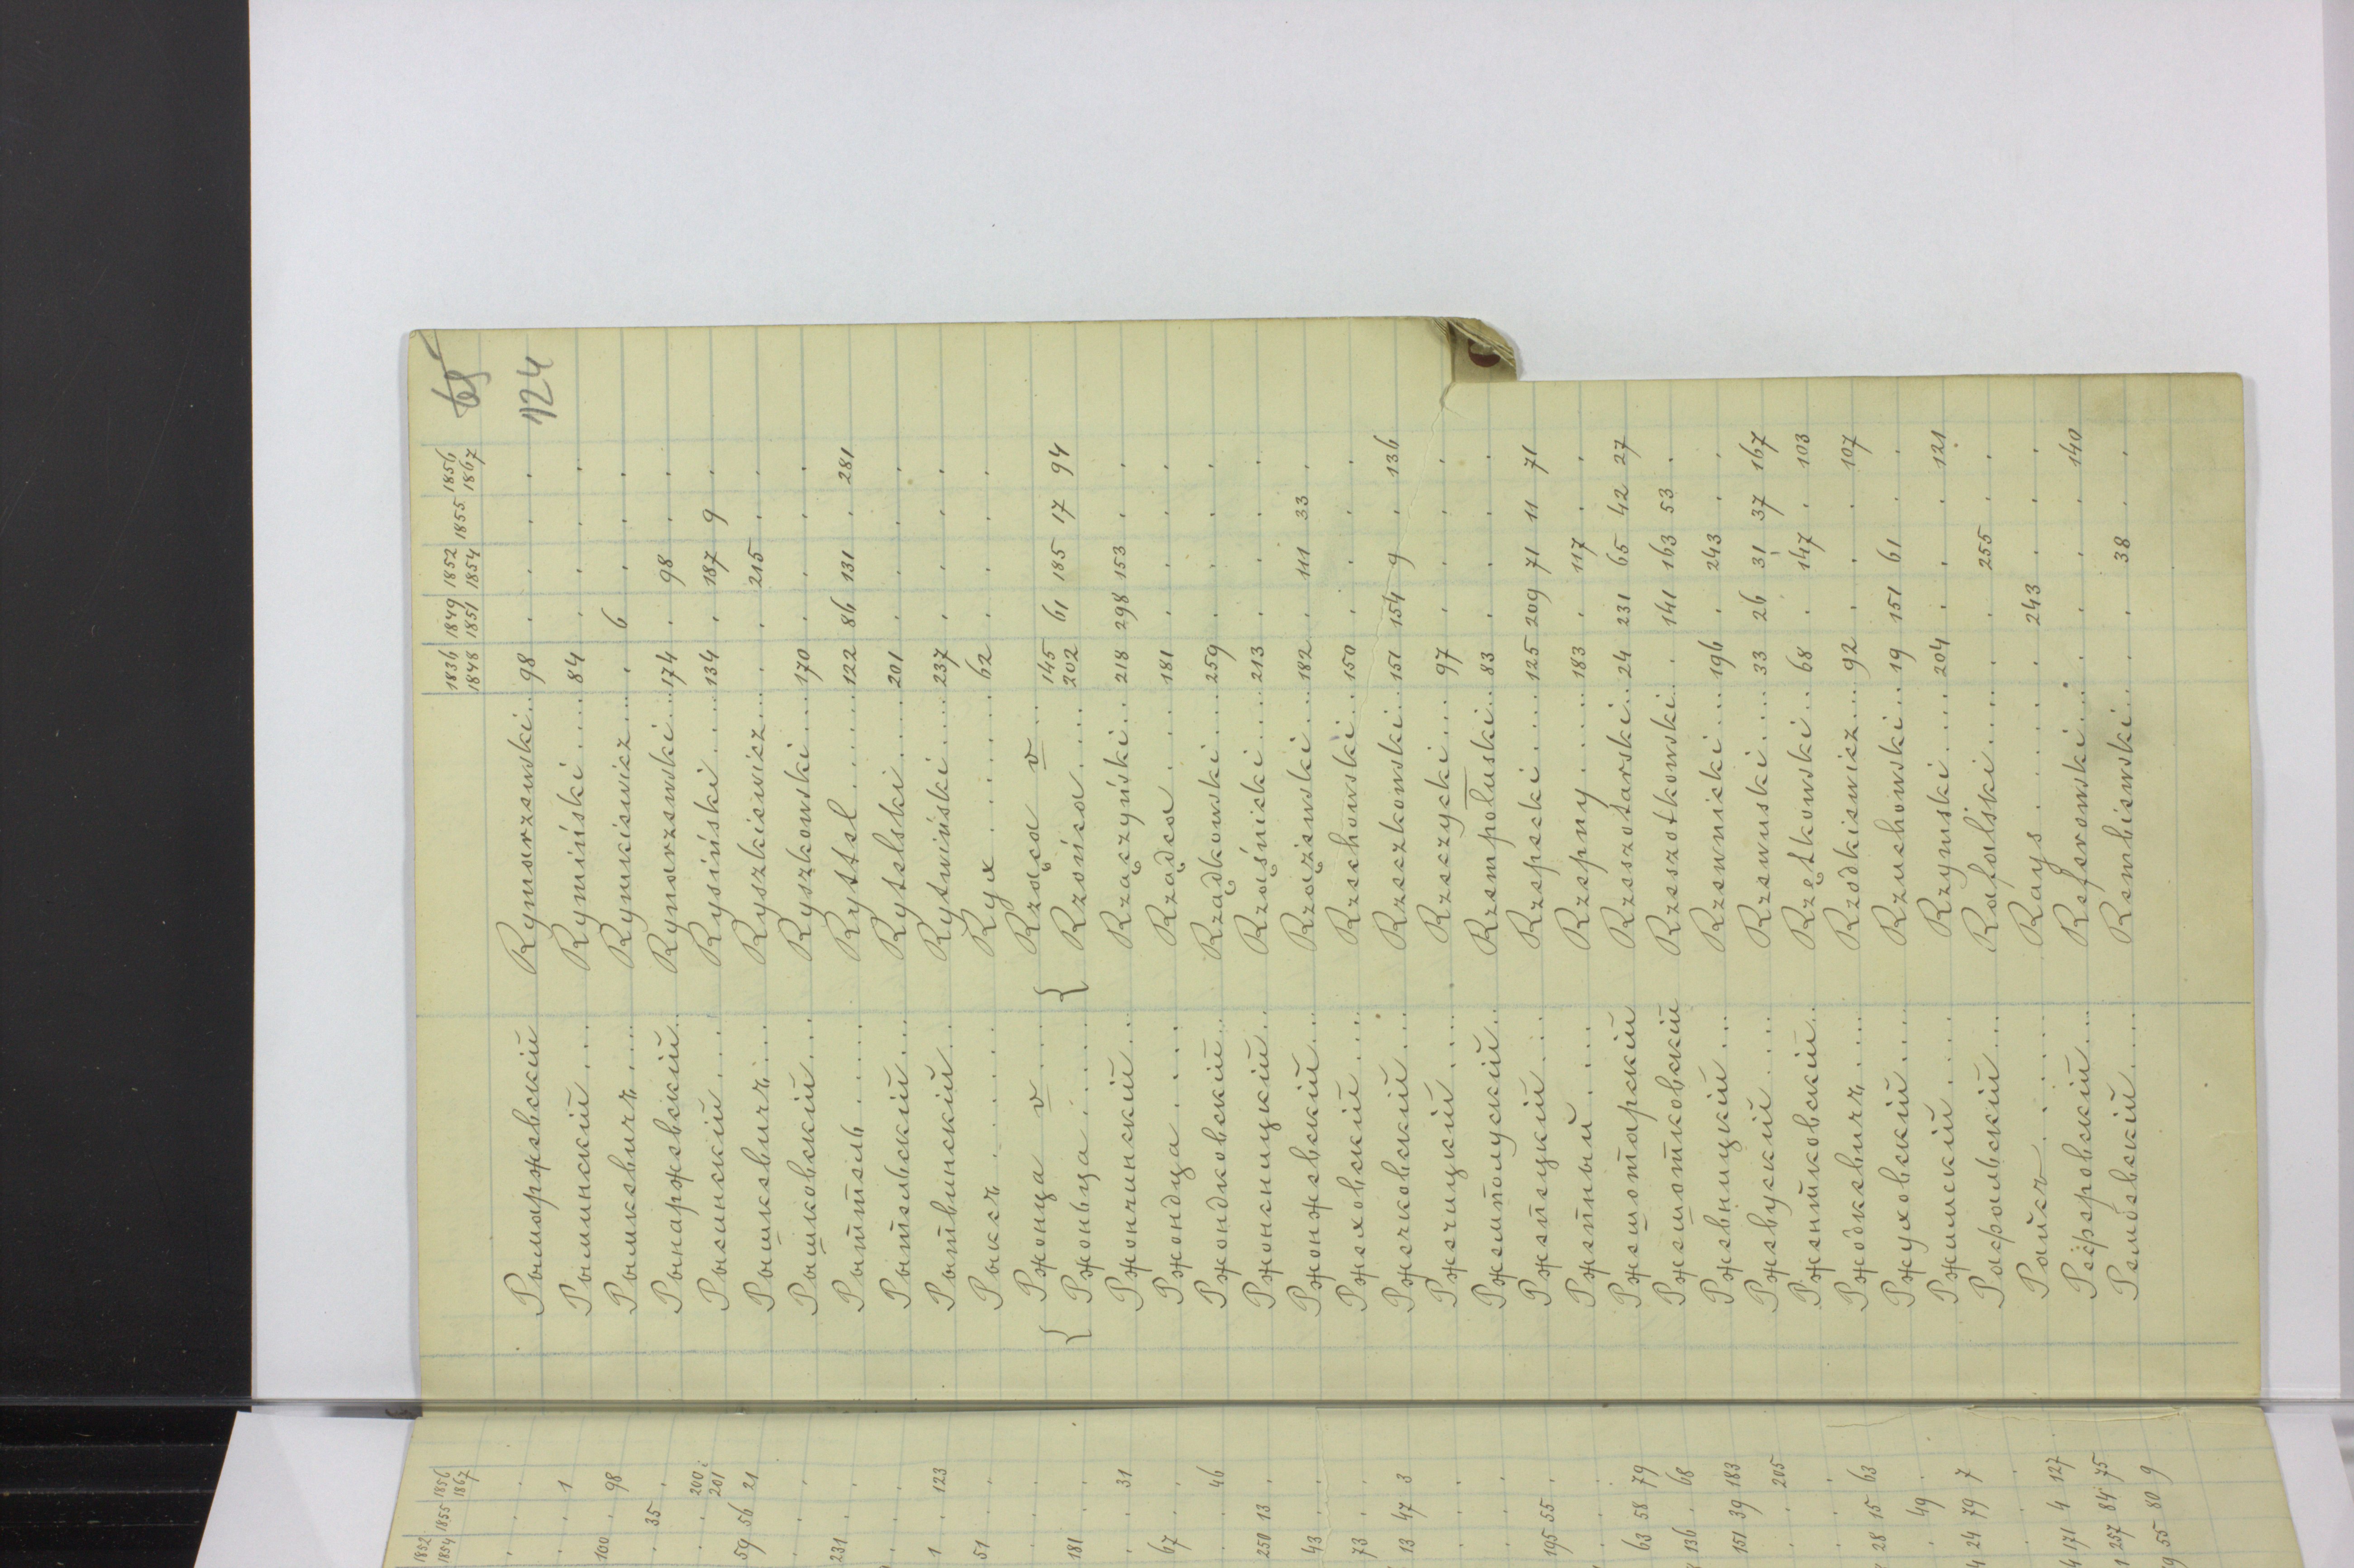 65
124
1836 1848 | 1849 1851 | 1852 1854 | 1855 | 1856 1867
Рымаржевскій Rymarzewski... 98 . . . .
Рыминскій.... Rymiński.... 84 . . . .
Рымкевичъ.... Rymkiewicz... . 6 . . .
Рынаржевскій.. Rynarzewski... 174 . 98 . .
Рысинскій.... Rysiński.... 134 . 187 9 .
Рышкевичъ.... Ryszkiewicz... . . 215 . .
Рышковскій... Ryszkowski.... 170 . . . .
Рыттель..... Ryttel...... 122 86 131 . 281
Рытельскій... Rytelski..... 201 . . . .
Рытвинскій... Rytwiński.... 237 . . . .
Рыксъ...... Ryx....... 62 . . . .
{ Ржонца v.... { Rząca v... 145
Ржоньца..... Rzońca.... 202 61 185 17 94
Ржончинскій.. Rzączyński.. 218 298 153 . .
Ржондца.... Rządca..... 181 . . . .
Ржондковскій.. Rządkowski.... 259 . . . .
Ржонсницкій.. Rząśnicki.... 213 . . . .
Ржонжевскій... Rzążewski... 182 . 111 33 .
Ржеховскій.... Rzechowski... 150 . . . .
Ржечковскій... Rzeczkowski... 151 154 9 . 136
Ржечицкій.... Rzeczycki... 97 . . . .
Ржемполускій.. Rzempołuski.. 83 . . . .
Ржепецкій.... Rzepecki..... 125 209 71 11 71
Ржепный..... Rzepny..... 183 . 117 . .
Ржешотарскій Rzeszotarski.. 24 231 65 42 27
Ржешотковскій Rzeszotkowski.. . 141 163 53 .
Ржевницкій... Rzewnicki.... 196 . 243 . .
Ржевускій.... Rzewuski.... 33 26 31 37 167
Ржентковскій.. Rzętkowski.. 68 . 147 . 103
Ржодкевичъ.... Rzodkiewicz... 92 . . . 107
Ржуховскій.... Rzuchowski.. 19 151 61 . .
Ржимскій.... Rzymski.... 204 . . . 121
Рафальскій.... Rafalski..... . . 255 . .
Райсъ...... Rays...... . 243 . . .
Рефферовскій... Referowski... . . . . 140
Рембевскій.... Rembiewski... . . 38 . .
1852 1854 | 1855 | 1856 1867
. . .
. . 1
100 . 98
. 35 .
. . 200 i 201
59 56 21
. . .
231 . .
. . .
1 . 123
51 . .
. . .
181 . .
. . 31
67 . .
. . 46
250 13 .
43 . .
73 . .
13 47 3
. . .
. . .
195 55 .
. . .
63 58 79
136 . 68
151 39 183
. . 205
. . .
28 15 63
. 49 .
24 79 7
. . .
171 4 127
257 84 75
55 80 9